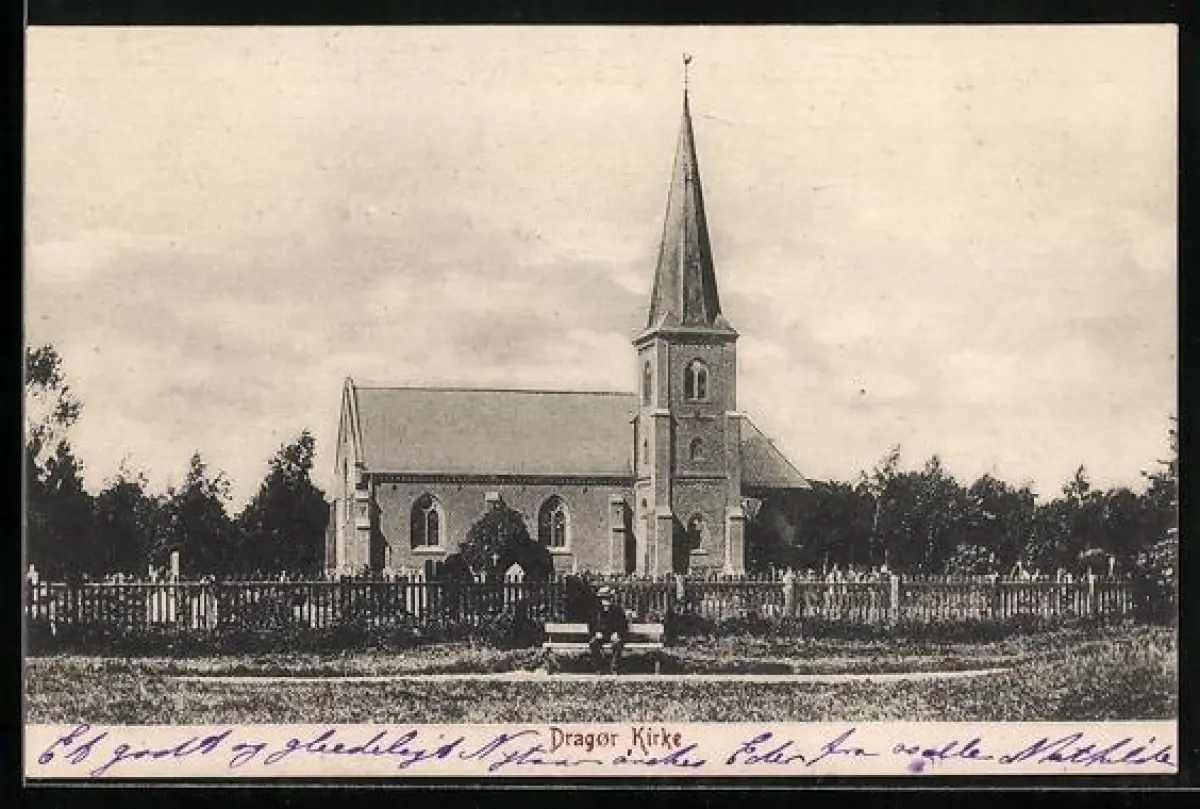 Dragør Kirke
Et godt og glædeligt Nytaar ønskes Eder fra os alle Mathilde